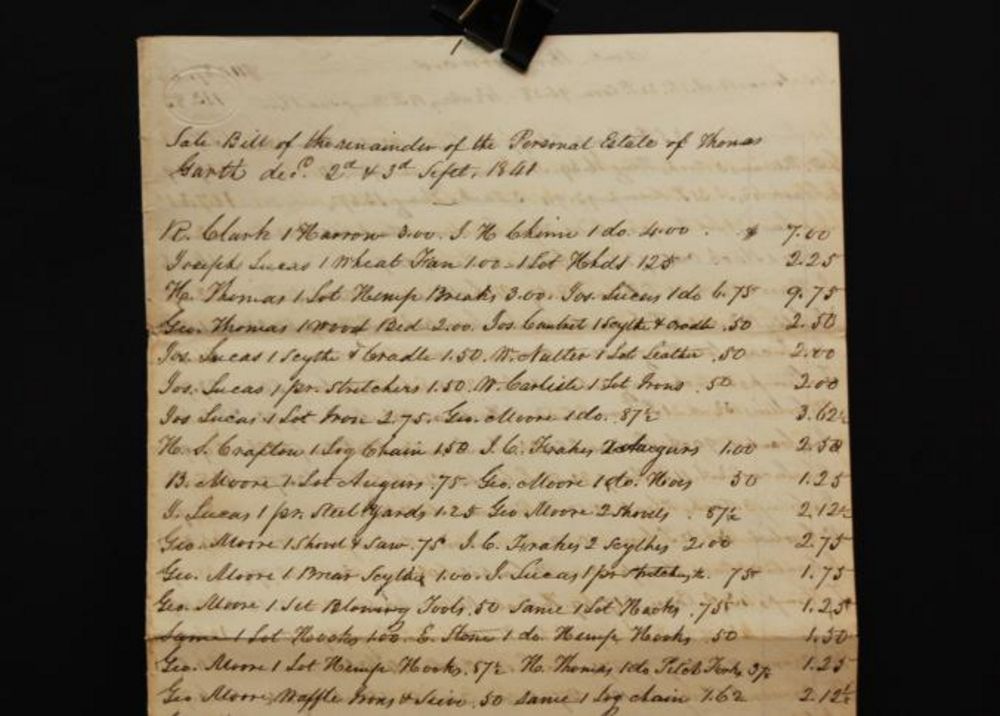 Sale Bill of the remainder of the Personal Estate of Thomas
Garth decd. 2d & 3d Sept. 1841
R. Clark 1 Harrow 3.00. J. H. 1 do 4.00. $ 7.00
Joseph Lucas 1 Wheat Fan 1.00 - 1 Lot Hhds 125 2.25
H. Thomas 1 Lot Hemp Breaks 3.00. Jos. Lucas 1 do 6.75 9.75
Geo. Thomas 1 Wood Bed 2.00. Jos. 1 Scythe & Cradle .50 2.50
Jos. Lucas 1 Scythe & Cradle 1.50. W. Nutter 1 Lot Leather .50 2.00
Jos. Lucas 1 pr. Stretchers 1.50. W. Carlisle 1 Lot Irons .50 2.00
Jos Lucas 1 Lot Iron 2.75. Geo. Moore 1 do. 87½ 3.62½
H. S. Crafton 1 Log Chain 150 J. C. Frakes Augurs 1.00 2.50
B. Moore 1 Lot Augurs .75. Geo. Moore 1 do. Hoes 50 1.25
J. Lucas 1 pr. Steel Yards 1.25 Geo Moore 2 Shovels . 87½ 2.12½
Geo. Moore 1 Shovel & Saw .75 J. C. Frakes 2 Scythes 2.00 2.75
Geo. Moore 1 Briar Scythe 1.00. J. Lucas 1 pr 75 1.75
Geo. Moore 1 Set Blowing Tools .50 Same 1 Lot Hooks .75 1.25
Same 1 Lot Hooks 100. E. Stone 1 do. Hemp Hooks 50 1.50
Geo. Moore 1 Lot Hemp Hooks .87½ H. Thomas 1 do Pitch Forks 37½ 1.25
Geo Moore Waffle Irons & Seive .50 Same 1 Log chain 1.62 2.12½